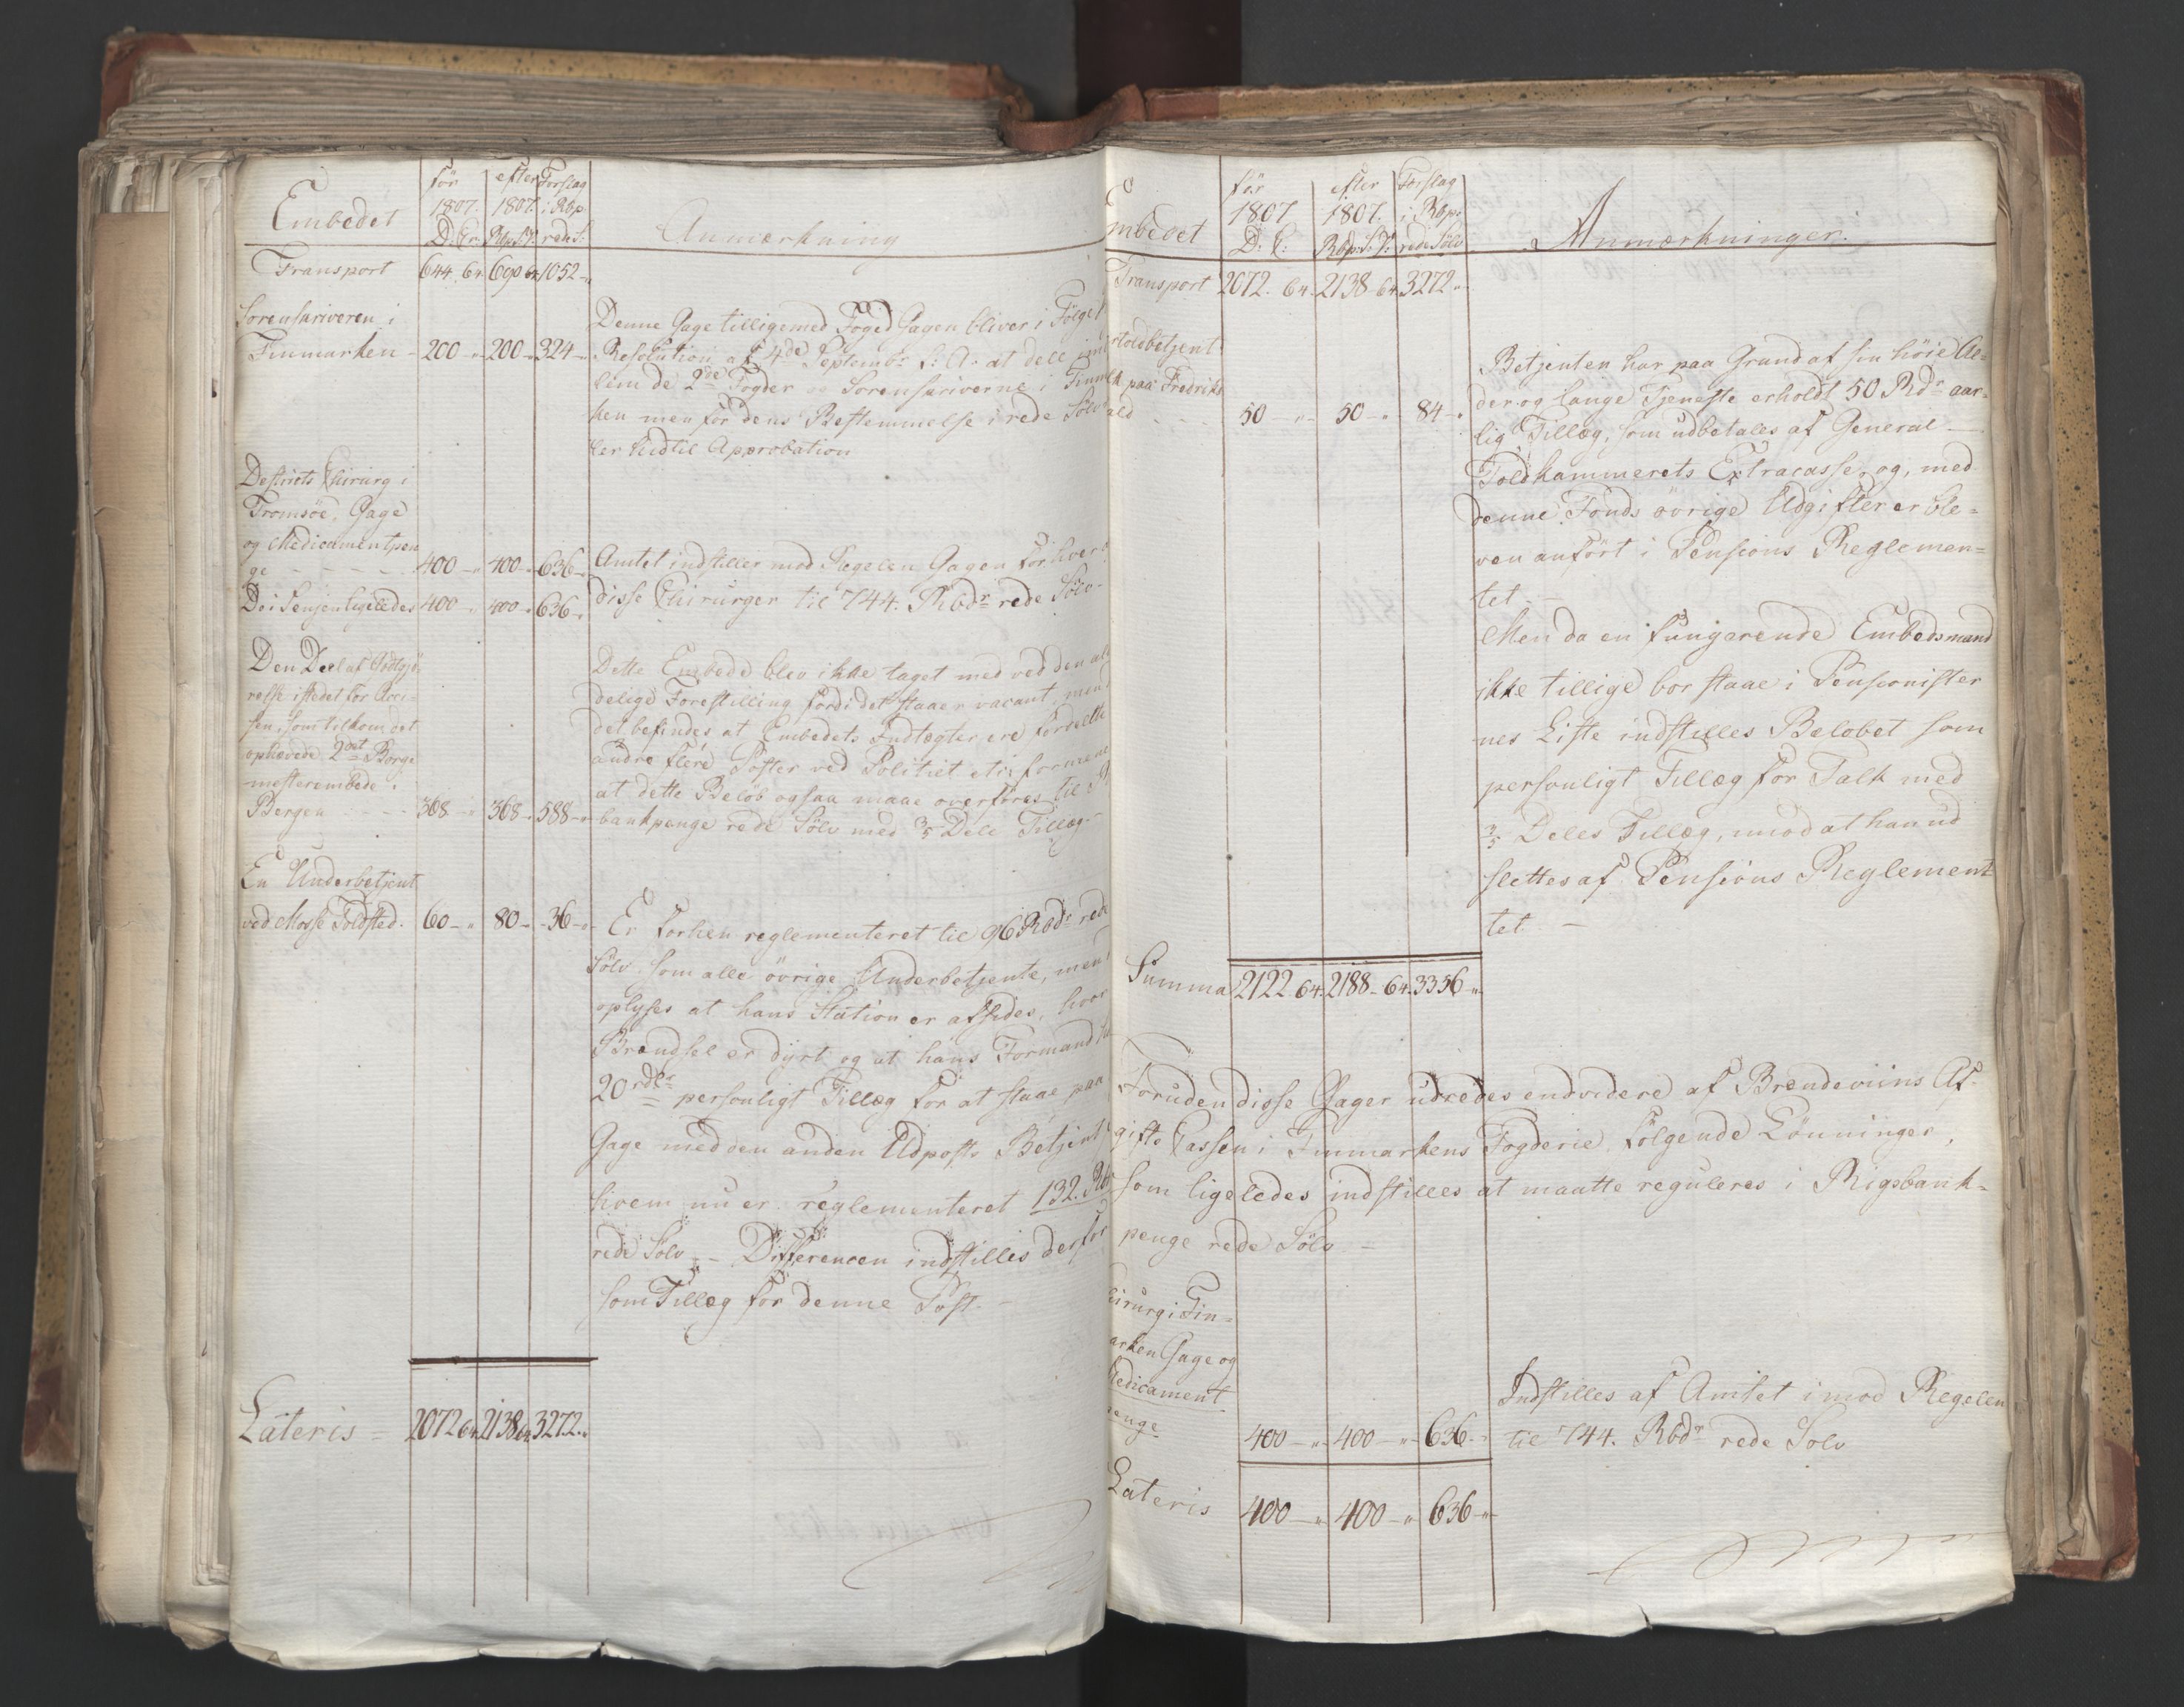 Embedet
för
1807.
D. Cr:
efter
1807.
Rbp. S. V.
Forslag
i Rbp.
rede S.
Anmærkning
Transport 644. 64. 690 64. 1052 -
Sorenskriveren i
Finmarken - 200 - 200 - 324 -
Denne Gage tilligemed Foged Gagen bliver i Fölge
Resolution af 4de Septembr f: A: at dele
lem de 2de Fogder og Sorenskriverne i Finmar
ken men for dens Bestemmelse i rede Sölv
ler hidtil Approbation
Destricts Chirurg i
Tromsöe, Gage
og Medicamentpen
ge - - - - 400 - 400 - 636 -
Amtet indstiller mod Regelen Gagen for hver
Do i Senjen ligeledes 400 - 400 - 636 -
disse Chirurger til 744. Rbdr rede Sölv -
Den Deel af Godtgjö-
relse istedet for Acci-
sen, som tilkom det
ophævede 2det Borge
mesterembede i
Bergen - - - - 368 - 368 - 588 -
Dette Embede blev ikke taget med ved den al
delige Forestilling fordi det staaer vacant, men
det befindes at Embedets Indtægter ere fordeelte
andre flere Poster ved Politiet etc; formene
at dette Belöb ogsaa maae overföres til
bankpenge rede Sölv med 3/5 Dele Tillæg -
En Underbetjent
ved Mosse Toldsted. 60 - 80 - 36 -
Er forhen reglementeret til 96 Rbdr rede
Sölv som alle övrige Underbetjente, men
oplyses at hans Station er afsides, hvor
Brændsel er dyrt og at hans Formand
20 rdlr personligt Tillæg for at staae paa
Gage med den anden Udposts Betjent
hvem nu er reglementeret 132. Rb
rede Sölv - Differencen indstilles derfor
som Tillæg for denne Post. -
Lateris = 2072 64. 2138 64. 3272. -
mbedet
för
1807
D. C:
efter
1807.
Rbp. S. V.
Forslag
i Rbp.
rede Sölv
Anmærkninger.
Transport 2072. 64. 2138 64. 3272 -
rtoldbetjent
lk paa Fredriks
ald - - - 50 - 50 - 84 -
Betjenten har paa Grund af sin höie Al=
der og lange Tjeneste erholdt 50 Rdr aar-
lig Tillæg, som udbetales af General -
Toldkammerets Extracasse, og, med
denne Fonds övrige Udgifter er ble=
ven anfört i Pensions Reglemen=
tet. -
Men da en fungerende Embedsmand
ikke tillige bör staae i Pensionister
nes Liste indstilles Belöbet som
personligt Tillæg for Falk med
3/5 Deles Tillæg, imod at han ud
slettes af Pensions Reglement
tet -
Summa 2122. 64. 2188 - 64. 3356 -
Foruden disse Gager udredes endvidere af Brendeviins Af-
gifts Cassen i Finmarkens Fogderie fölgende Lönninger,
som ligeledes indstilles at maatte reguleres i Rigsbank=
penge rede Sölv -
hirurg i Fin=
arken Gage og
Medicament
penge 400 - 400 - 636 -
Indstilles af Amtet imod Regelen
til 744. Rbdr rede Sölv
Lateris 400 - 400 - 636 -